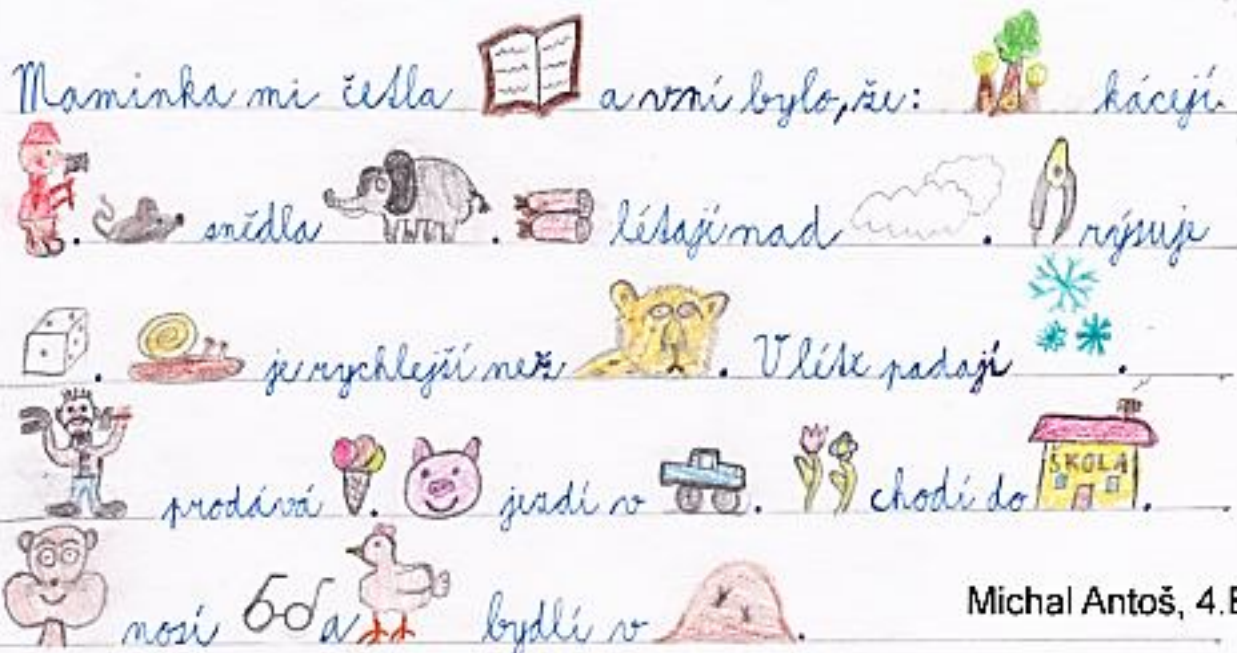 Maminka mi četla a vní bylo, že: kácejí
. snídla . létají nad . rýsuje
. je rychlejší než . V létě padají .
prodává . jezdí v . chodí do ŠKOLA .
nosí a bydlí v .
Michal Antoš, 4.B